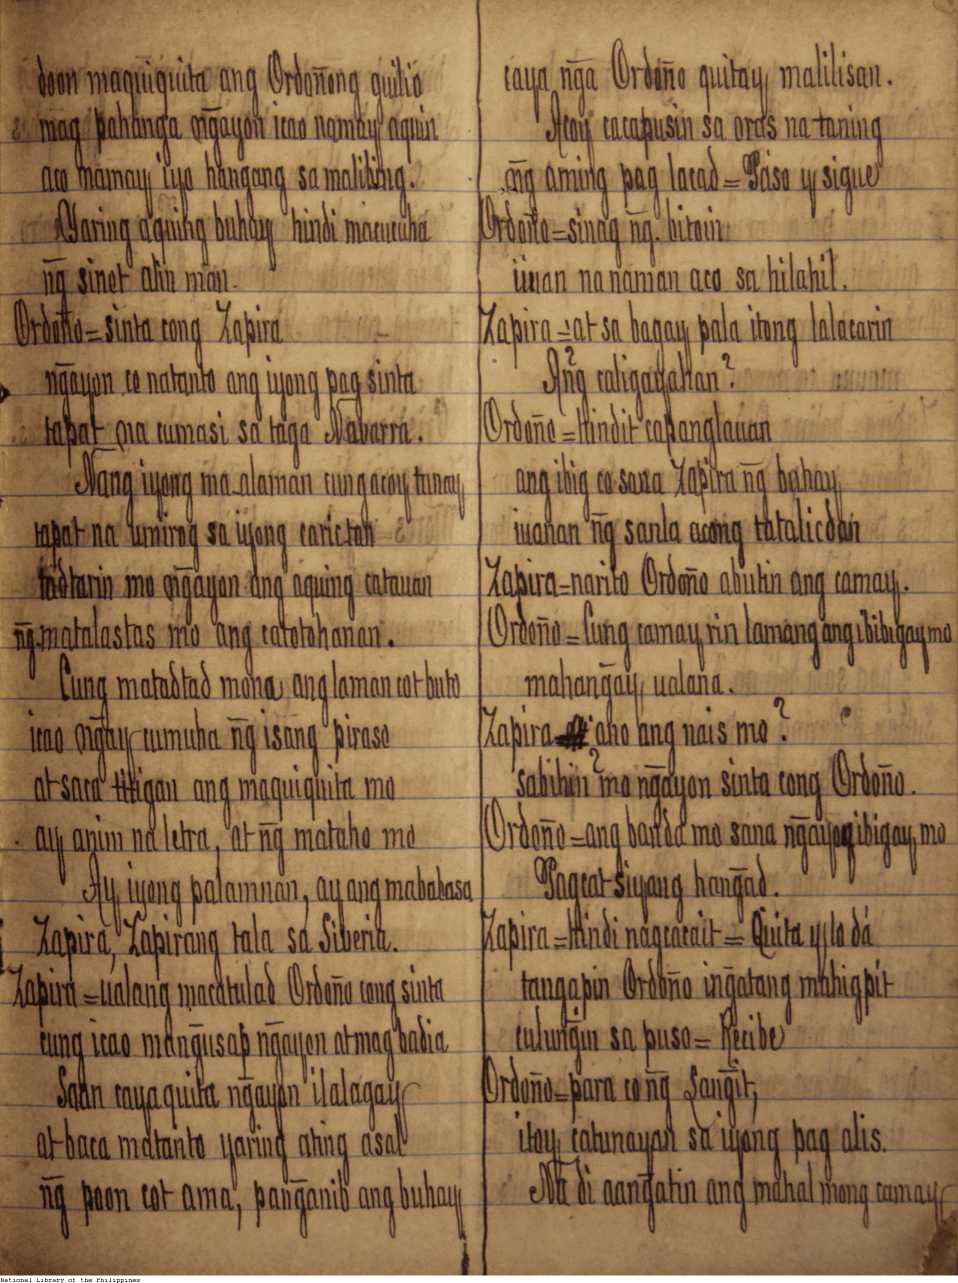 doon maquiquita ang Ordoñong guilio
mag pahanga ng̃ayon icao namay aquin
aco namay iyo hangang sa malibing.
Yaring aquing buhay hindi macucuha
ng̃ sinot alin man.
Ordoño=sinta cong Zapira
ng̃ayon co natanto ang iyong pag sinta
tapat na cumasi sa taga Nabarra.
Nang iyong ma alaman cung acoy tunay
tapat na umirog sa iyong carictan
tadtarin mo ng̃ayon ang aquing catauan
ng̃ matalastas mo ang catotohanan.
Cung matadtad mona ang laman cot buto
icao ng̃ay cumuha ng̃ isang piraso
at saca titigan ang maquiquita mo
ay anim na letra, at ng̃ mataho mo
Ay iyong palamnan, ay ang mababasa
Zapira, Zapirang tala sa Siberia.
Zapira=ualang macatulad Ordoño cong sinta
cung icao mang̃usap ng̃ayon at mag badia
Saan caya quita ng̃ayon ilalagay
at baca matanto yaring ating asal
ng̃ poon cot ama, pang̃anib ang buhay
caya ng̃a Ordoño quitay malilisan.
Acoy cacapusin sa oras na taning
ng̃ aming pag lacad=Paso y sigue
Ordoño=sinag ng̃. bitoin
iiuan na naman aco sa hilahil.
Zapira=at sa bagay pala itong lalacarin
Ang̃ caligayahan?
Ordoño=Hindit capanglauan
ang ibig co sana Zapira ng̃ buhay
iuanan ng̃ sanla acong tatalicdan
Zapira=narito Ordoño abutin ang camay.
Ordoño=Cung camay rin lamang ang ibibigay mo
mahang̃ay ualana.
Zapira ano ang nais mo?
sabihin mo ng̃ayon sinta cong Ordoño.
Ordoño=ang banda mo sana ng̃ayoy ibigay mo
Pagcat siyang hang̃ad.
Zapira=Hindi nagcacait=Quita y lo dá
tangapin Ordoño ing̃atang mahigpit
culung̃in sa puso=Recibe
Ordoño=para co ng̃ Lang̃it,
itoy catunayan sa iyong pag alis.
Na di aang̃atin ang mahal mong camay
National Library of the Philippines